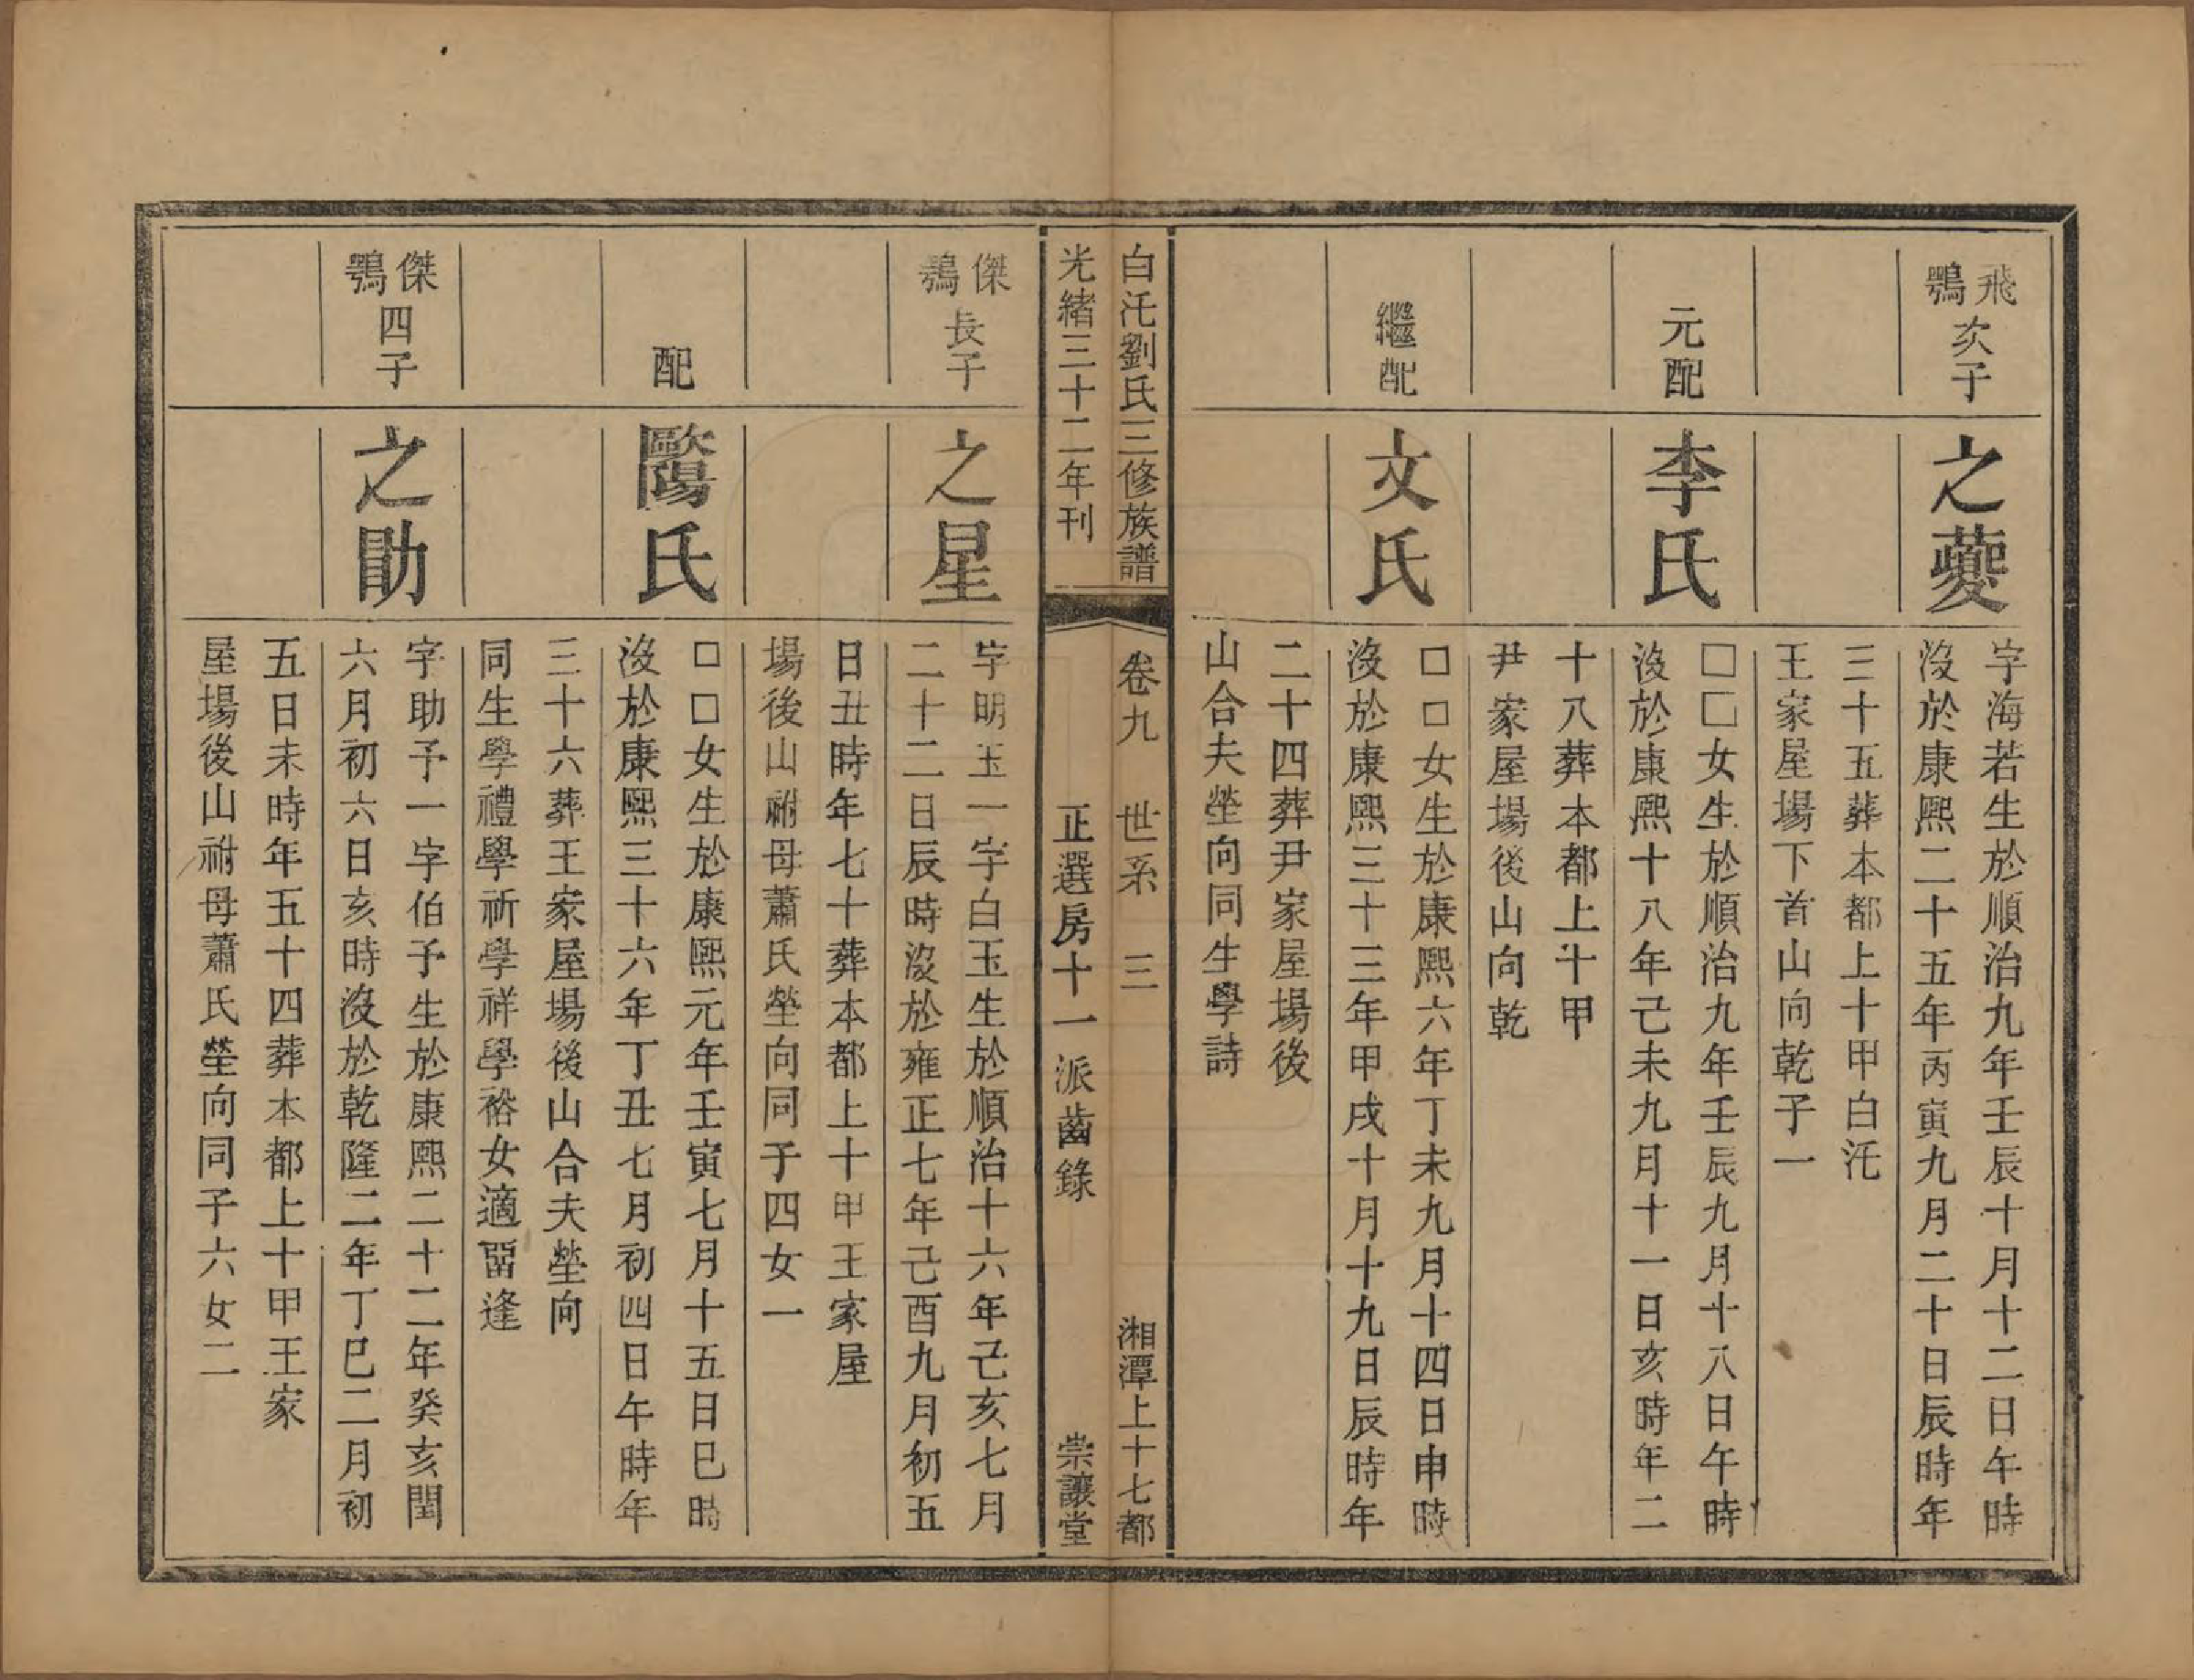 飛鶚次子
之蘷
字海若生於順治九年壬辰十月十二日午時
沒於康熙二十五年丙寅九月二十日辰時年
三十五葬本都上十甲白汑
王家屋場下首山向乾子一
元配
李氏
□□女生於順治九年壬辰九月十八日午時
沒於康熙十八年己未九月十一日亥時年二
十八葬本都上十甲
尹家屋場後山向乾
繼配
文氏
□□女生於康熙六年丁未九月十四日申時
沒於康熙三十三年甲戌十月十九日辰時年
二十四葬尹家屋場後
山合夫塋向同生學詩
白汑劉氏三修族譜
卷九 世系 三
湘潭上十七都
光緒三十二年刊
正選房十一派齒錄
崇讓堂
傑鶚長子
之星
字明玉一字白玉生於順治十六年己亥七月
二十二日辰時沒於雍正七年己酉九月初五
日丑時年七十葬本都上十甲王家屋
場後山祔母蕭氏塋向同子四女一
配
歐陽氏
□□女生於康熙元年壬寅七月十五日巳時
沒於康熙三十六年丁丑七月初四日午時年
三十六葬王家屋場後山合夫塋向
同生學禮學祈學祥學裕女適畱逢
傑鶚四子
之助
字助予一字伯予生於康熙二十二年癸亥閏
六月初六日亥時沒於乾隆二年丁巳二月初
五日未時年五十四葬本都上十甲王家
屋場後山祔母蕭氏塋向同子六女二